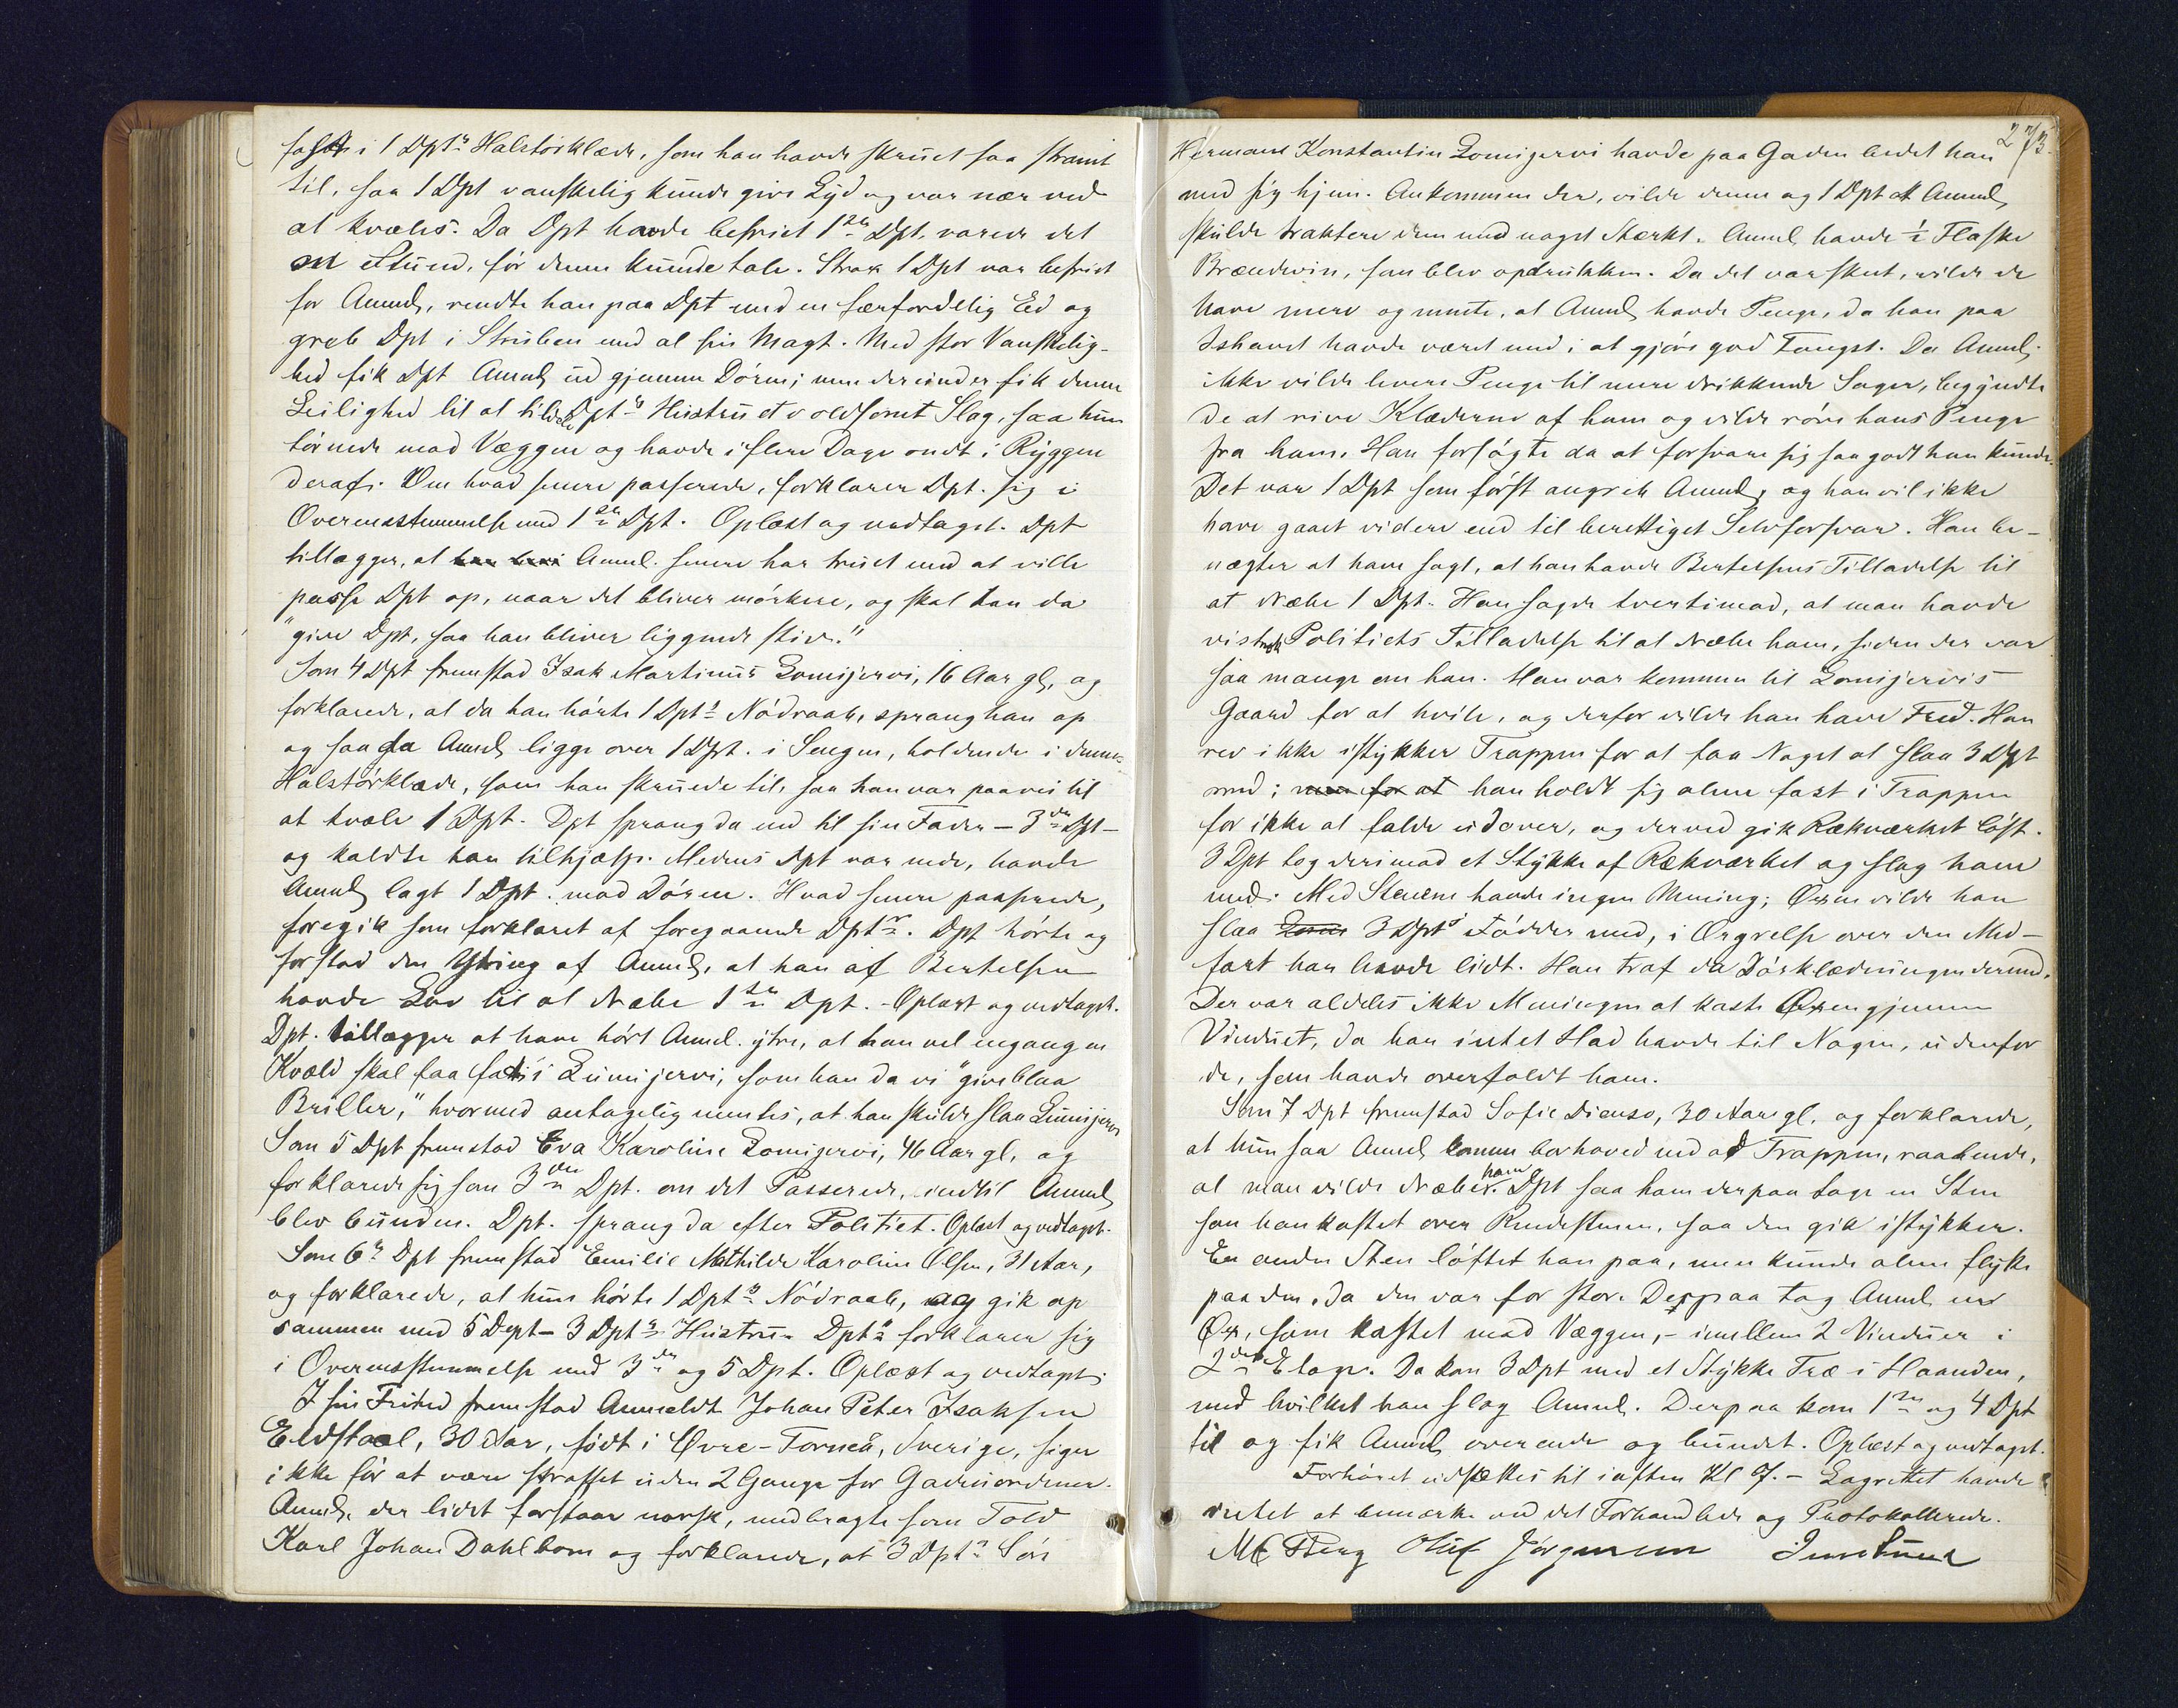 fast i 1 Dpts Halstørklæde, som han havde skruet saa stramt
til, saa 1 Dpt vanskelig kunde give Lyd og var nær ved
at kvæles. Da Dpt havde befriet 1ste Dpt, varede det
en Stund, før denne kunde tale. Strax 1 Dpt var befriet
for Anmd, rendte han paa Dpt med en færfordelig Ed og
greb Dpt i Struben med al sin Magt. Med stor Vanskelig-
hed fik Dpt Anmd ud gjennem Døren; men derunder fik denne
Leilighed til at tildele Dpts Hustru et voldsomt Slag, saa hun
tørnede mod Væggen og havde i flere Dage ondt i Ryggen
deraf. Om hvad senere passerede, forklarer Dpt. sig i
Overensstemmelse med 1ste Dpt. Oplæst og vedtaget. Dpt
tillægger, at Anmd. senere har truet med at ville
passe Dpt op, naar det bliver mørkere, og skal han da
"give Dpt, saa han bliver liggende stiv."
Som 4 Dpt fremstod Isak Martinus Lomijervi, 16 Aar gl, og
forklarede, at da han hørte 1 Dpts Nødraab, sprang han op
og saa da Anmd ligge over 1 Dpt. i Sengen, holdende i dennes
Halstørklæde, som han skruede til, saa han var paavei til
at kvæle 1 Dpt. Dpt sprang da ned til sin Fader – 3die Dpt –
og kaldte ham tilhjælp. Medens Dpt var nede, havde
Anmd lagt 1 Dpt. mod Døren. Hvad senere passerede,
foregik som forklaret af foregaaende Dptr. Dpt hørte og
forstod den Ytring af Anmd, at han af Bertelsen
havde Lov til at dræbe 1ste Dpt. – Oplæst og vedtaget.
Dpt. tillægger at have hørt Anmd. ytre, at han vel engang en
Kvæld skal faa fat i Lumijervi, som han da vi "give blaa
Briller," hvormed antagelig mentes, at han skulde slaa Lumijervi
Som 5 Dpt fremstod Eva Karoline Lomijervi, 46 Aar gl, og
forklarede sig som 3die Dpt. om det Passerede, indtil Anmd
blev bunden. Dpt. sprang da efter Politiet. Oplæst og vedtaget.
Som 6te Dpt fremstod Emilie Mathilde Karoline Olsen, 31 Aar,
og forklarede, at hun hørte 1 Dpts Nødraab, og gik op
sammen med 5 Dept – 3 Dpts Hustru. Dpts forklarer sig
i Overensstemmelse med 3die og 5 Dpt. Oplæst og vedtaget.
I sin Frihed fremstod Anmeldte Johan Peter Isaksen
Eldstaal, 30 Aar, født i Øvre-Torneå, Sverige, siger
ikke før at være straffet uden 2 Gange for Gadeuordener.
Anmd, der lidet forstaar norsk, medbragte som Tolk
Karl Johan Dahlbom og forklarede, at 3 Dpts Søn
273.
Hermans Konstantin Lomijervi havde paa Gaden bedet ham
med sig hjem. Ankommen der, vilde denne og 1 Dpt at Anmd
skulde traktere dem med noget Stærkt. Anmd havde ½ Flaske
Brændevin, som blev opdrukken. Da det var skeet, vilde de
have mere og mente, at Anmd havde Penge, da han paa
Ishavet havde været med i at gjøre god Fangst. Da Anmd.
ikke vilde levere Penge til mere drikkende Sager, begyndte
de at rive Klæderne af ham og vilde røve hans Penge
fra ham. Han forsøgte da at forsvare sig saa godt han kunde.
Det var 1 Dpt som først angreb Anmd, og han vil ikke
have gaaet videre end til berettiget Selvforsvar. Han be-
nægter at have sagt, at han havde Bertelsens Tilladelse til
at dræbe 1 Dpt. Han sagde tvertimod, at man havde
vist nok Politiets Tilladelse til at dræbe ham, siden der var
saa mange om ham. Han var kommen til Lomijervis
Gaard for at hvile, og derfor vilde han have Fred. Han
rev ikke istykker Trappen for at faa Noget at slaa 3 Dpt
med; men for at han holdt sig alene fast i Trappen
for ikke at falde udover, og derved gik Rækværket løst.
3 Dpt tog derimod et Stykke af Rækværket og slog ham
med. Med Stenene havde ingen Mening; Øxen vilde han
slaa 3 Dpts Fødder med, i Ærgrelse over den Med-
fart han havde lidt. Han traf da Dørklædningen dermed.
Der var aldeles ikke Meningen at kaste Øxen gjennem
Vinduet, da han intet Had havde til Nogen, udenfor
de, som havde overfaldt ham.
Som 7 Dpt fremstod Sofie Dienso, 30 Aar gl. og forklarede,
at hun saa Anmd komme barhoved ned ad Trappen, raabende,
at man vilde dræbe ham. Dpt saa ham derpaa tage en Sten
som han kastet over Rendestenen, saa den gik istykker.
En anden Sten løftet han paa, men kunde alene flytte
paa den, da den var for stor. Derpaa tog Anmd en
Øx, som kastet mod Væggen, – imellem 2 Vinduer i
2den Etage. Da kom 3 Dpt med et Stykke Træ i Haanden,
med hvilket han slog Anmd. Derpaa kom 1ste og 4 Dpt
til og fik Anmd overende og bundet. Oplæst og vedtaget.
Forhøret udsættes til iaften Kl 7. – Lagrettet havde
intet at bemærke ved det Forhandlede og Protokollerede.
Berg Oluf Jørgensen Jens Lund